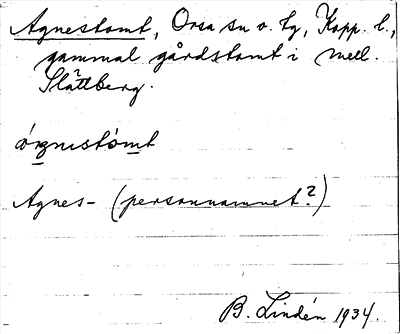 Agnestomt, Orsa sn o. tg, Kopp. l.,
gammal gårdstomt i mell.
Slättberg.
ógnistómt
Agnes- (personnamnet?)
B. Lindén 1934.